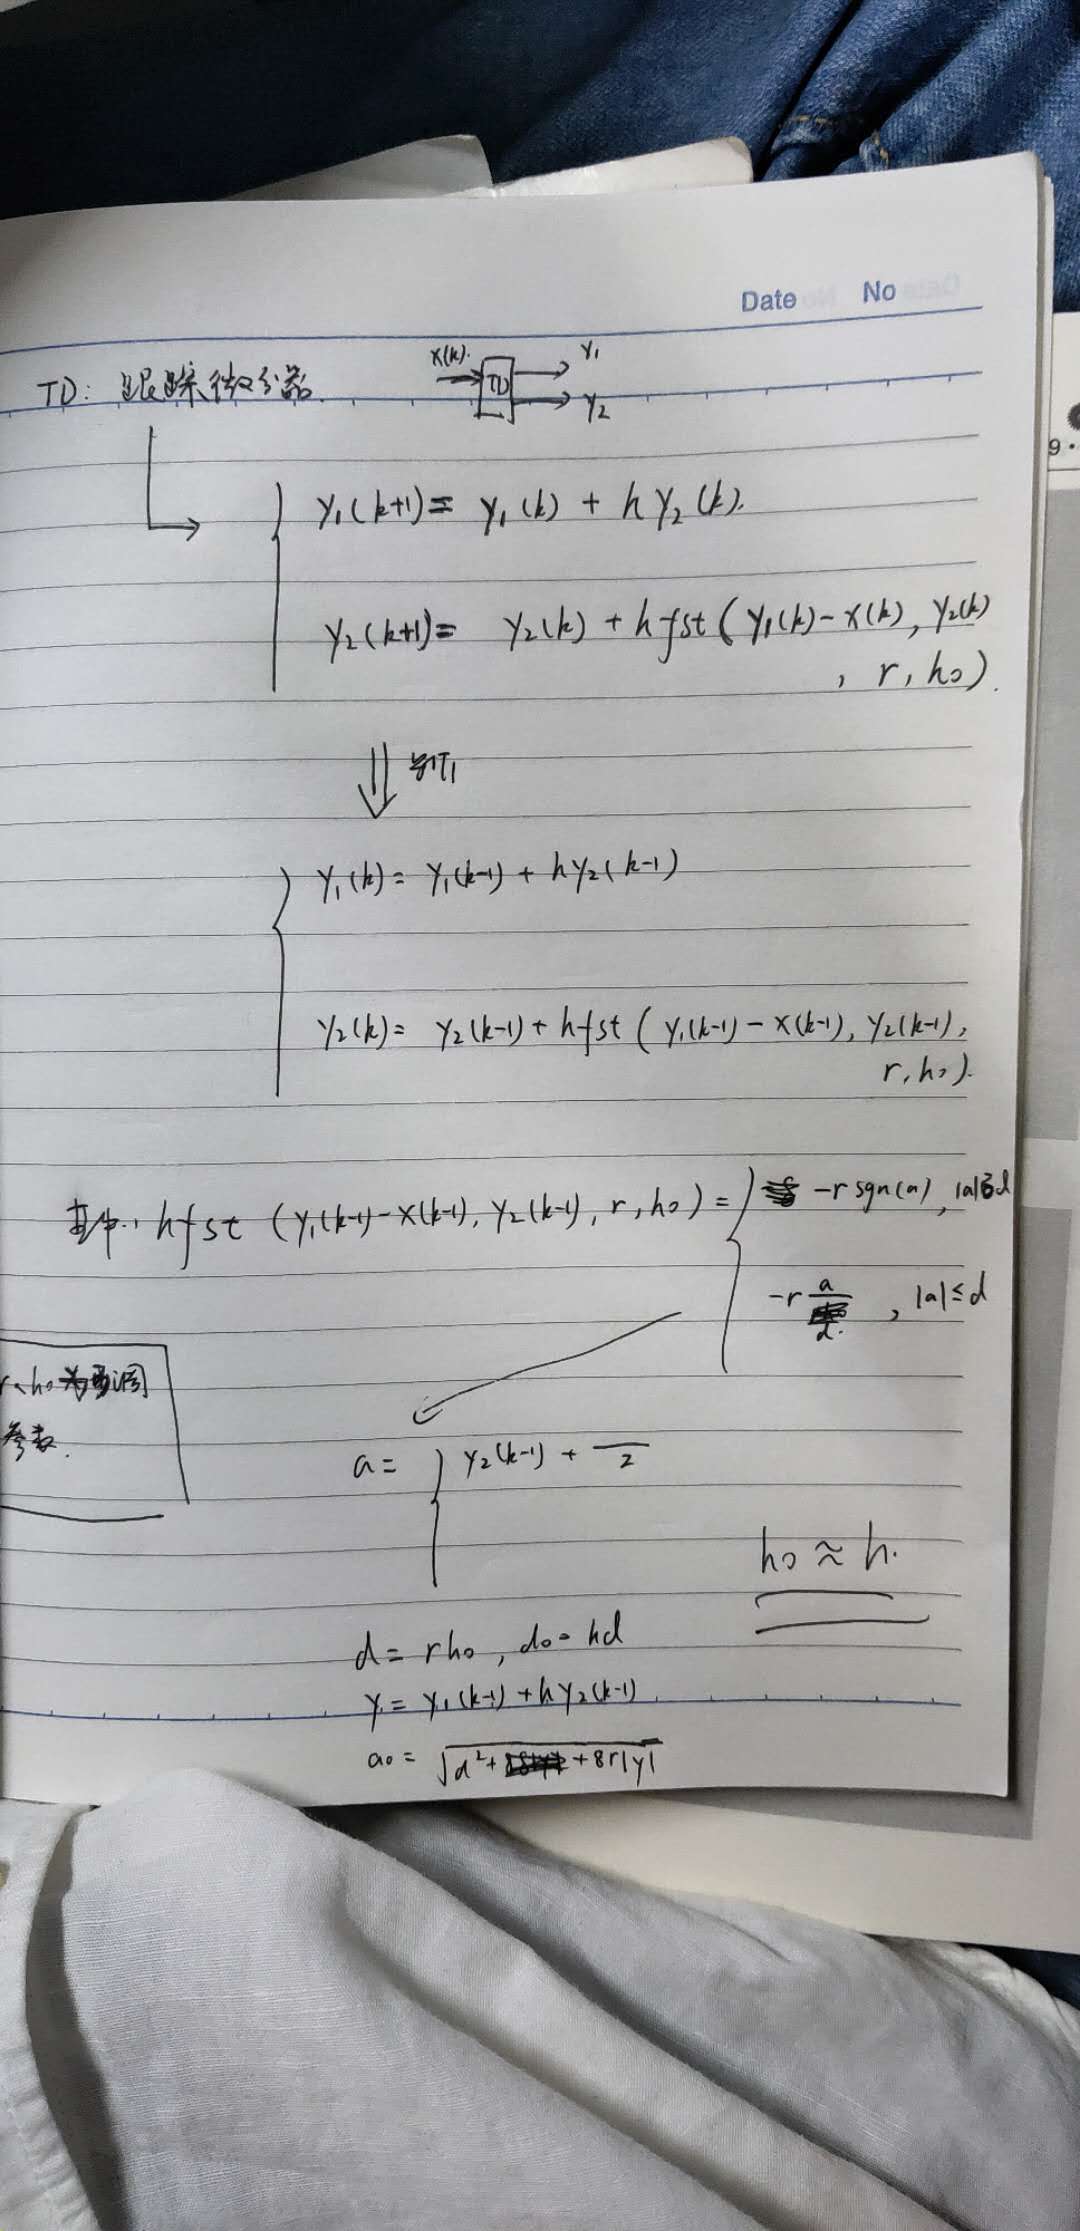 Date No
TD: 跟踪微分器 x(k) TD y₁
y₂
y₁(k+1)= y₁(k) + h y₂(k).
y₂(k+1)= y₂(k) + h fst ( y₁(k)-x(k), y₂(k)
, r, h₀).
y₁(k)= y₁(k-1) + hy₂(k-1)
y₂(k)= y₂(k-1) + h fst ( y₁(k-1) - x(k-1), y₂(k-1),
r, h₀).
其中: hfst (y₁(k-1)-x(k-1), y₂(k-1), r, h₀) = -r sgn(a), |a|>d
-r a/d. , |a|≤d
r、h₀为可调
参数.
a= y₂(k-1) + —/2
h₀ ≈ h.
d= rh₀, d₀= hd
y= y₁(k-1) +hy₂(k-1)
a₀ = √d²+ +8r|y|